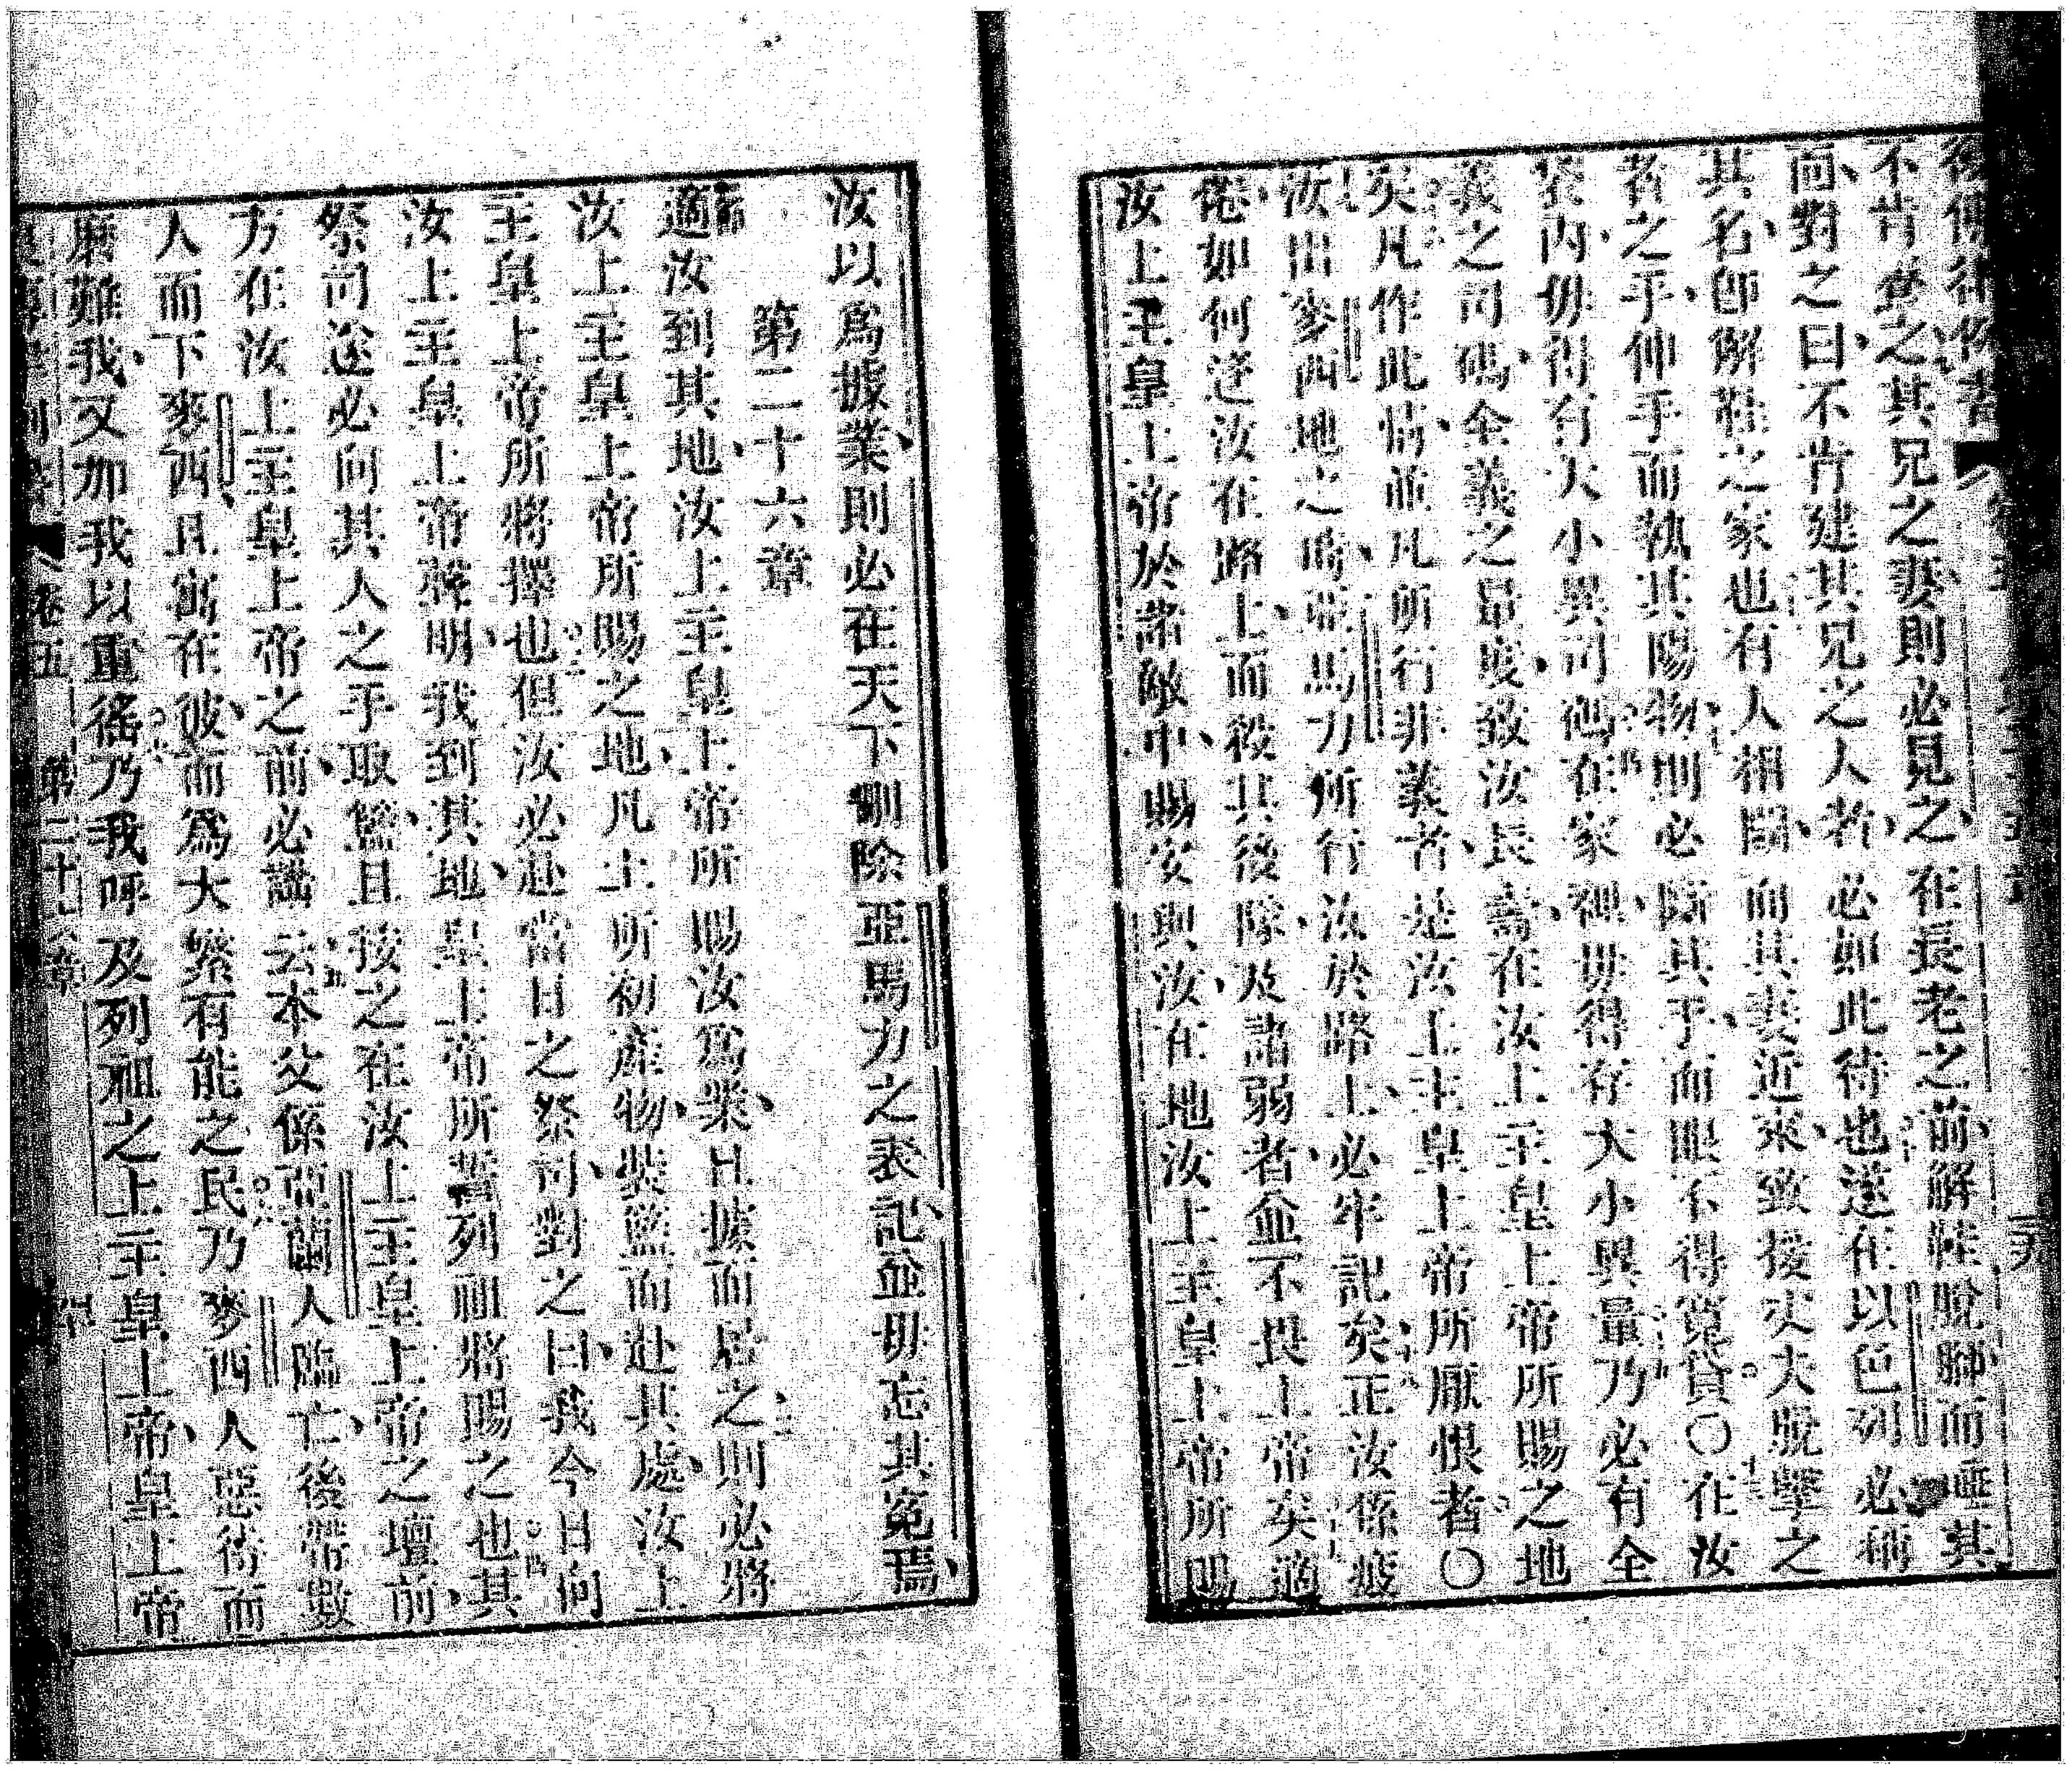 不肯娶之其兄之妻則必見之在長老之前解鞋脫腳而唾其
面對之曰不肯建其兄之人者必如此待也遂在以色列必稱
其名卽解鞋之家也有人相鬪而其妻近來致援丈夫脫擊之
者之手伸手而執其陽物則必斷其手而眼不得寬貸〇在汝
袋內毋得有大小異司碼在家裡毋得存大小異量乃必有全
義之司碼全義之昻度致汝長壽在汝上主皇上帝所賜之地
矣凡作此情並凡所行非義者是汝上主皇上帝所厭恨者〇
汝出麥西地之時亞馬力所行汝於路上必牢記矣正汝係疲
倦如何逢汝在路上而殺其後隊及諸弱者並不畏上帝矣適
汝上主皇上帝於諸敵中賜安與汝在地汝上主皇上帝所賜
汝以爲據業則必在天下刪除亞馬力之表記並毋忘其冤焉
第二十六章
適汝到其地汝上主皇上帝所賜汝爲業且據而居之則必將
汝上主皇上帝所賜之地凡土所初產物裝籃而赴其處汝上
主皇上帝所將擇也但汝必赴當日之祭司對之曰我今日向
汝上主皇上帝稱明我到其地皇上帝所誓列祖將賜之也其
祭司遂必向其人之手取籃且按之在汝上主皇上帝之壇前
方在汝上主皇上帝之前必講云本父係亞蘭人臨亡後帶數
人而下麥西且寓在彼而爲大繁有能之民乃麥西人惡待而
磨難我又加我以重徭乃我呼及列祖之上主皇上帝皇上帝
卷五 第二十六章